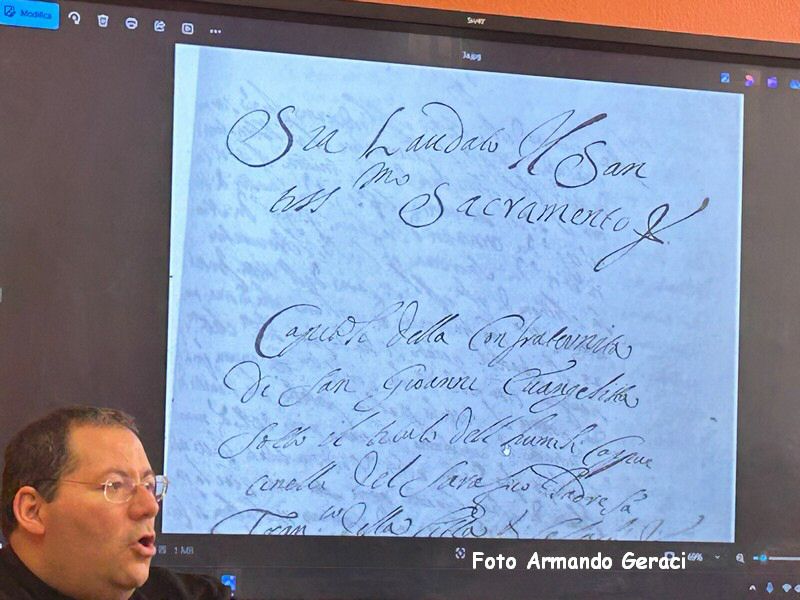 Modifica
SMART
3a.jpg
Sia Laudato Il San
tiss.mo Sacramento
Capitoli della Confraternita
Di San Gioanne Evangelista
sotto il titulo dell'humili Cappuc
cinelli del Sera fico Padre Sa
Fran.co della Città
1 MB
69%
Foto Armando Geraci